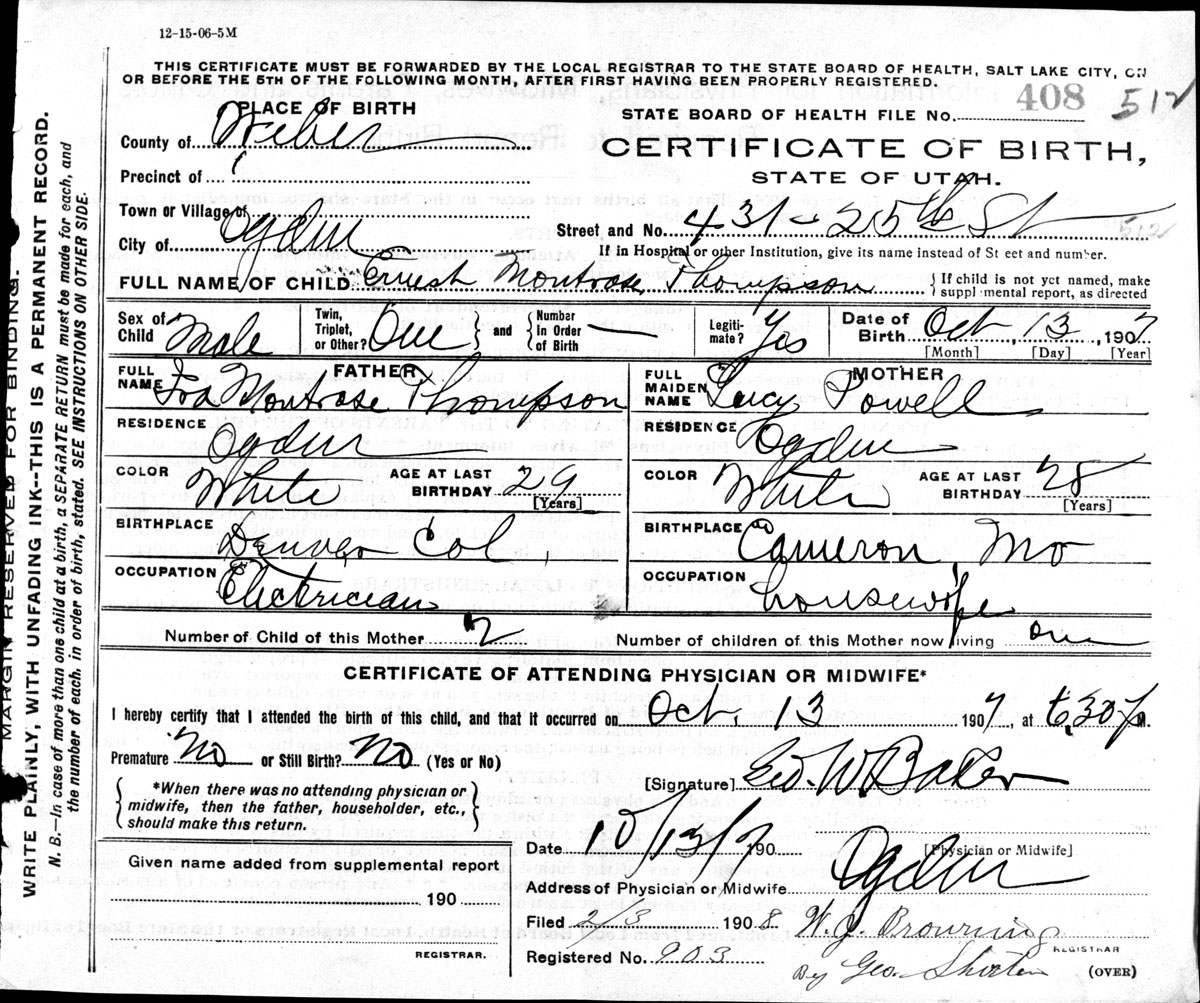 12-15-06-5M
THIS CERTIFICATE MUST BE FORWARDED BY THE LOCAL REGISTRAR TO THE STATE BOARD OF HEALTH, SALT LAKE CITY, ON
OR BEFORE THE 5TH OF THE FOLLOWING MONTH, AFTER FIRST HAVING BEEN PROPERLY REGISTERED.
PLACE OF BIRTH
STATE BOARD OF HEALTH FILE NO. 408 512
County of Weber
CERTIFICATE OF BIRTH,
Precinct of
STATE OF UTAH.
Town or Village of
Street and No. 431 - 25th St
512
City of Ogden
If in Hospital or other Institution, give its name instead of St eet and number.
FULL NAME OF CHILD Ernest Montrose Thompson
{ If child is not yet named, make
suppl mental report, as directed
Sex of Child Male
Twin, Triplet, or Other? One } and { Number In Order of Birth —
Legiti-mate? Yes
Date of Birth Oct, 13, 1907
[Month] [Day] [Year]
FATHER
FULL NAME Ira Montrose Thompson
MOTHER
FULL MAIDEN NAME Lucy Powell
RESIDENCE Ogden
RESIDENCE Ogden
COLOR White AGE AT LAST BIRTHDAY 29 [Years]
COLOR White AGE AT LAST BIRTHDAY 28 [Years]
BIRTHPLACE Denver Col
BIRTHPLACE Cameron, Mo
OCCUPATION Electrician
OCCUPATION housewife
Number of Child of this Mother 2
Number of children of this Mother now living one
CERTIFICATE OF ATTENDING PHYSICIAN OR MIDWIFE*
I hereby certify that I attended the birth of this child, and that it occurred on Oct, 13 1907, at 6,30 m.
Premature? No or Still Birth? No (Yes or No)
[Signature] Geo. W Baker
{ *When there was no attending physician or
midwife, then the father, householder, etc.,
should make this return. }
Date 10/13/7 190
[Physician or Midwife]
Given name added from supplemental report
190
Address of Physician or Midwife Ogden
Filed 2/3 1908 W. J. Browning
REGISTRAR
REGISTRAR.
Registered No. 903
By Geo. Shorten
(OVER)
MARGIN RESERVED FOR BINDING.
WRITE PLAINLY, WITH UNFADING INK--THIS IS A PERMANENT RECORD.
N. B.—In case of more than one child at a birth, a SEPARATE RETURN must be made for each, and
the number of each, in order of birth, stated. SEE INSTRUCTIONS ON OTHER SIDE.